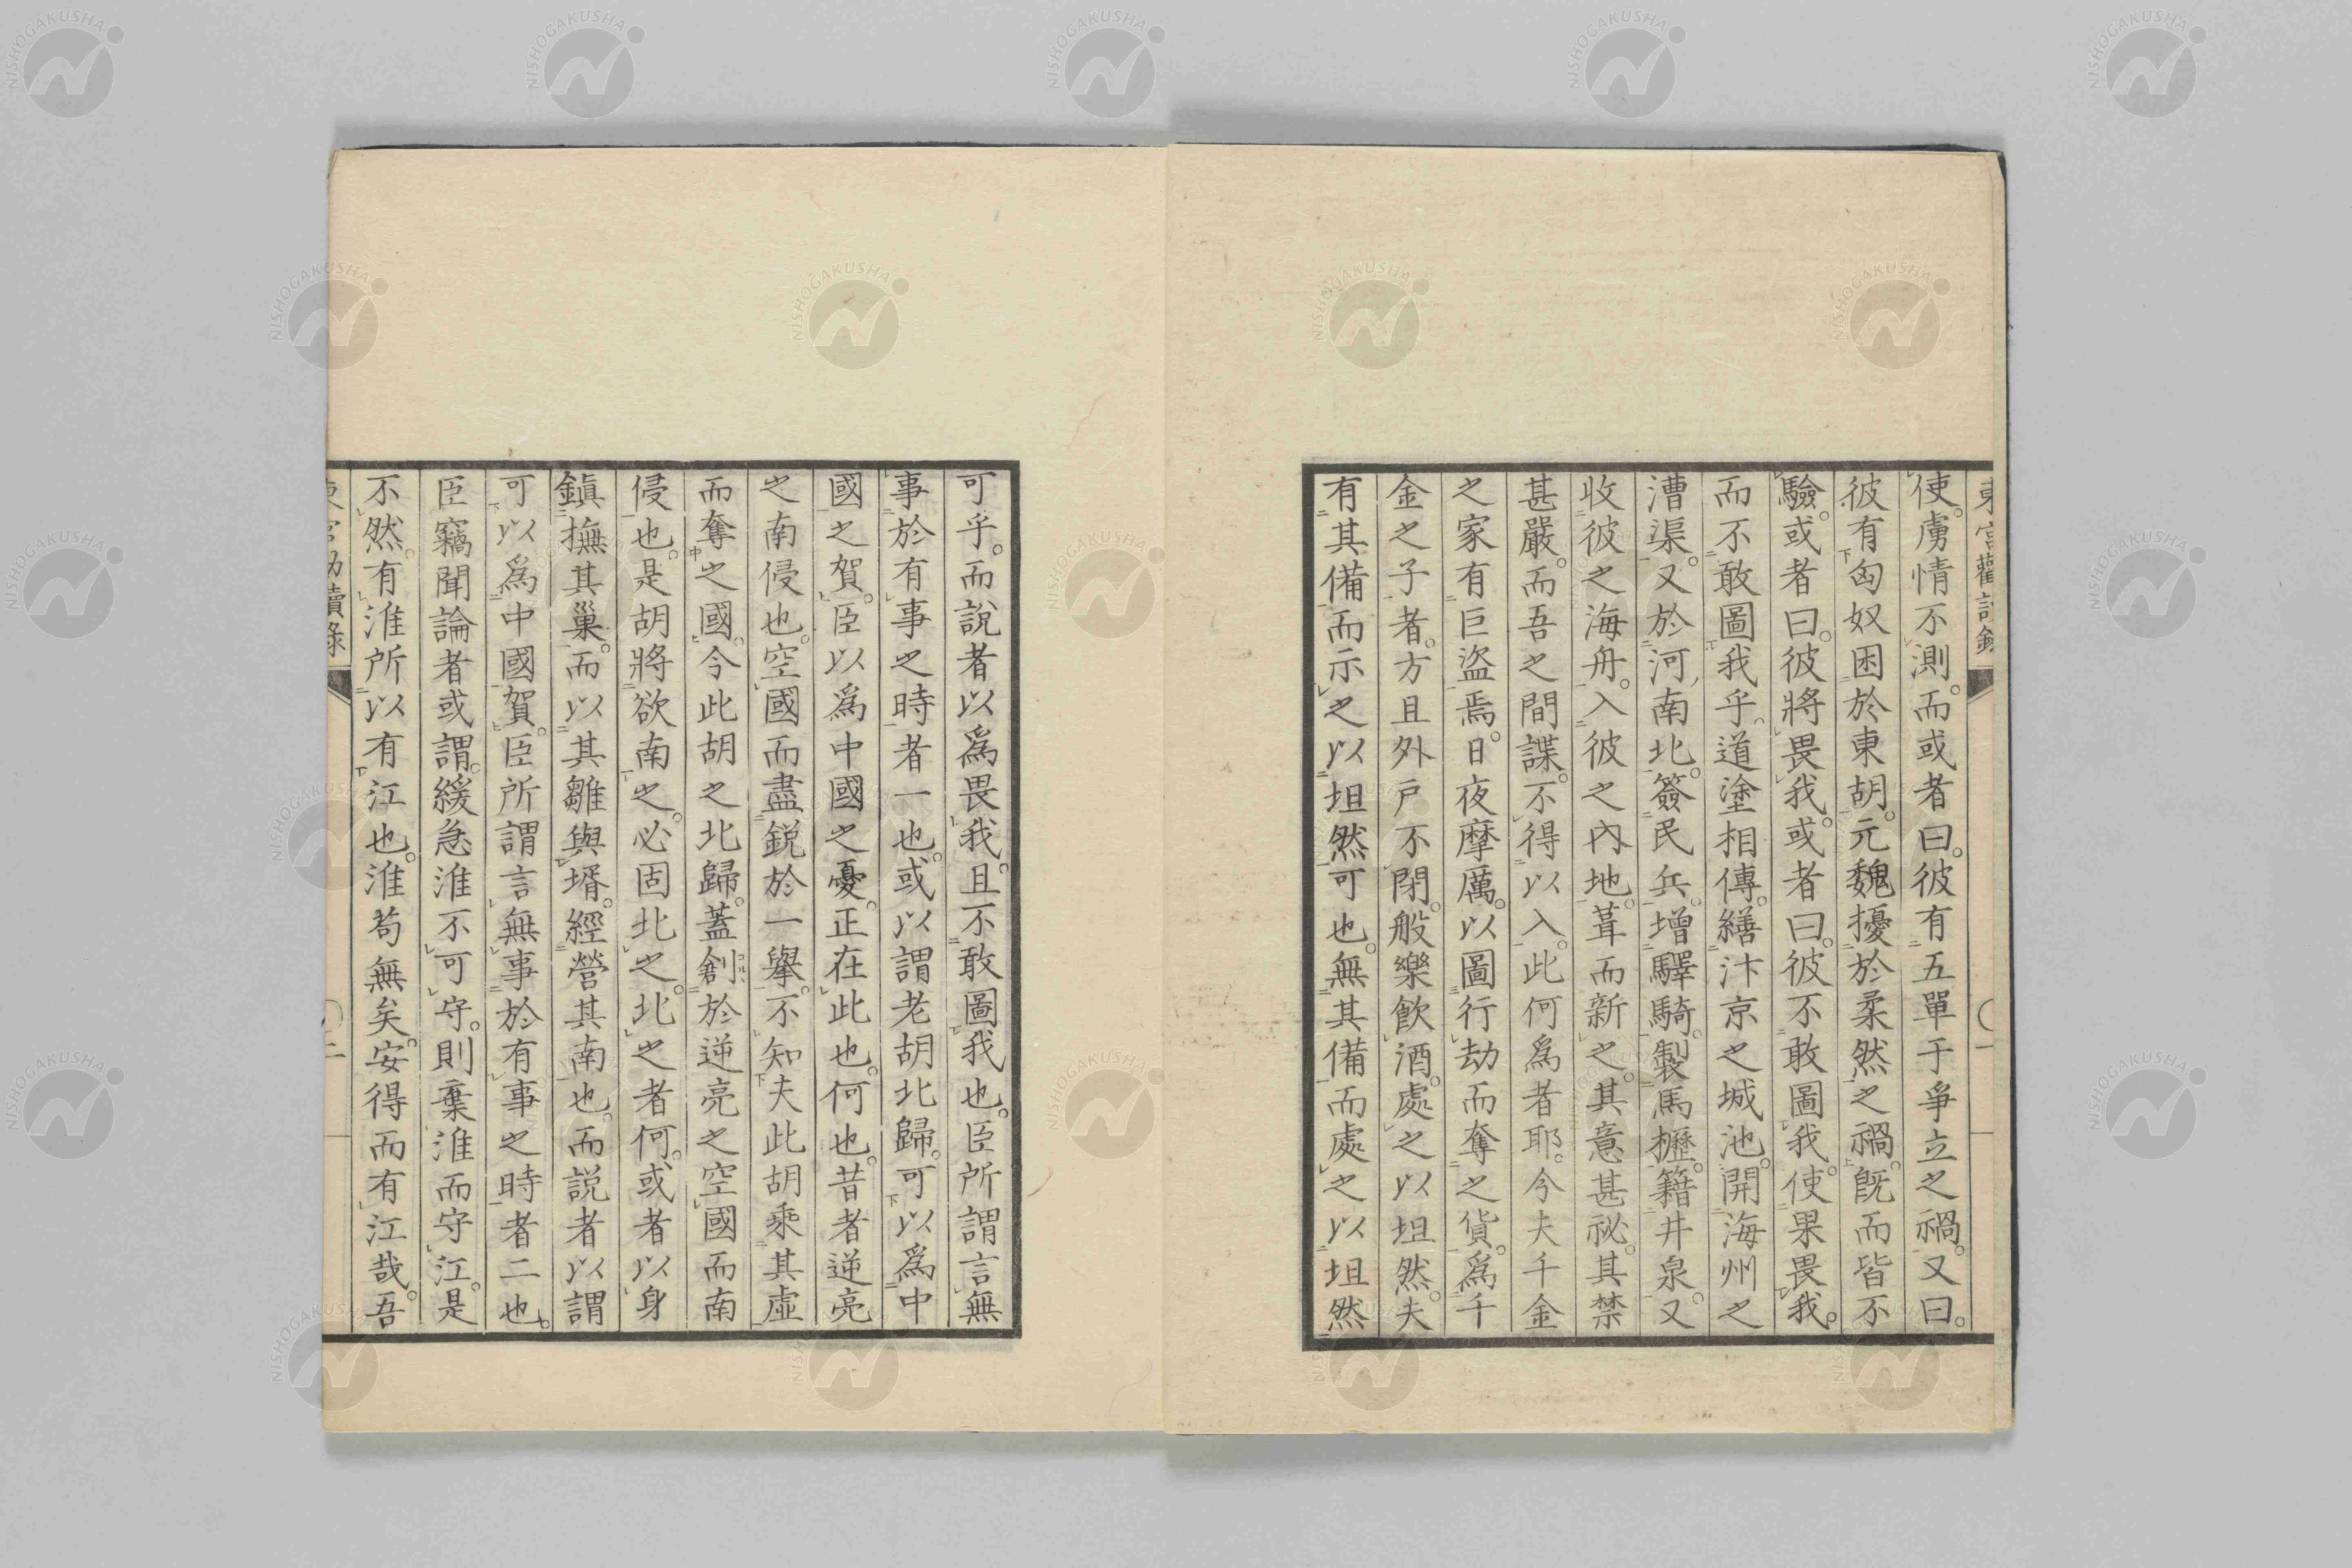 使。虜情不測。而或者曰。彼有五單于爭立之禍。又曰。
彼有匈奴困於東胡。元魏擾於柔然之禍。旣而皆不
驗。或者曰。彼將畏我。或者曰。彼不敢圖我。使果畏我。
而不敢圖我乎。道塗相傳。繕汴京之城池。開海州之
漕渠。又於河南北。簽民兵。增驛騎。製馬櫪。籍井泉。又
收彼之海舟。入彼之內地。葺而新之。其意甚祕。其禁
甚嚴。而吾之間諜。不得以入。此何爲者耶。今夫千金
之家有巨盜焉。日夜摩厲。以圖行劫而奪之貨。爲千
金之子者。方且外戶不閉。般樂飮酒。處之以坦然。夫
有其備而示之以坦然可也。無其備而處之以坦然
可乎。而說者以爲畏我。且不敢圖我也。臣所謂言無
事於有事之時者一也。或以謂老胡北歸。可以爲中
國之賀。臣以爲中國之憂。正在此也。何也。昔者逆亮
之南侵也。空國而盡銳於一擧。不知夫此胡乘其虛
而奪之國。今此胡之北歸。蓋創於逆亮之空國而南
侵也。是胡將欲南之。必固北之。北之者何。或者以身
鎭撫其巢。而以其雛與壻。經營其南也。而說者以謂
可以爲中國賀。臣所謂言無事於有事之時者二也。
臣竊聞論者或謂。緩急淮不可守。則棄淮而守江。是
不然。有淮所以有江也。淮苟無矣。安得而有江哉。吾